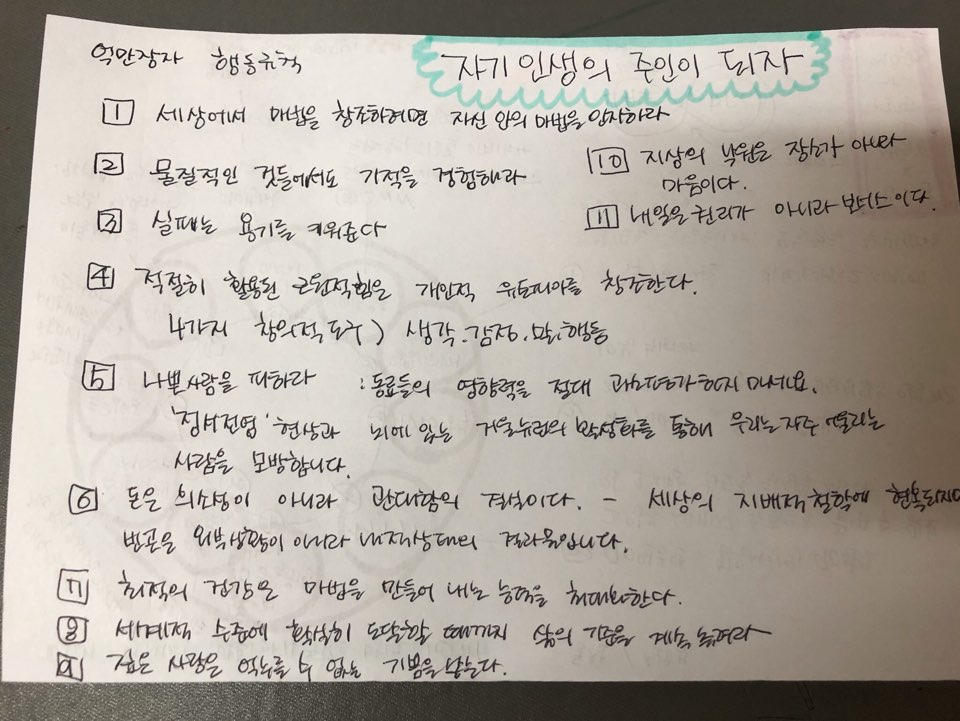 억만장자 행동규칙
자기 인생의 주인이 되자
1 세상에서 마법을 창조하려면 자신 안의 마법을 입장하라
2 물질적인 것들에서도 기적을 경험해라
3 실패는 용기를 키워준다
4 적절히 활용된 근원적힘은 개인적 유토피아를 창조한다.
4가지 창의적 도구) 생각.감정.말.행동
5 나쁜사람을 피하라 : 동료들의 영향력을 절대 과소평가하지 마세요.
'정서전염' 현상과 뇌에 있는 거울뉴런의 활성화를 통해 우리는 자주 어울리는
사람을 모방합니다.
6 돈은 희소성이 아니라 관대함의 결실이다. - 세상의 지배적철학에 현혹되지
빈곤은 외부상황이 아니라 내적상태의 결과물입니다.
7 최적의 건강은 마법을 만들어 내는 능력을 최대화한다.
8 세계적 수준에 확실히 도달할 때까지 삶의 기준을 계속 높여라
9 깊은 사랑은 억누를 수 없는 기쁨을 낳는다.
10 지상의 낙원은 장소가 아니라
마음이다.
11 내일은 권리가 아니라 보너스이다.